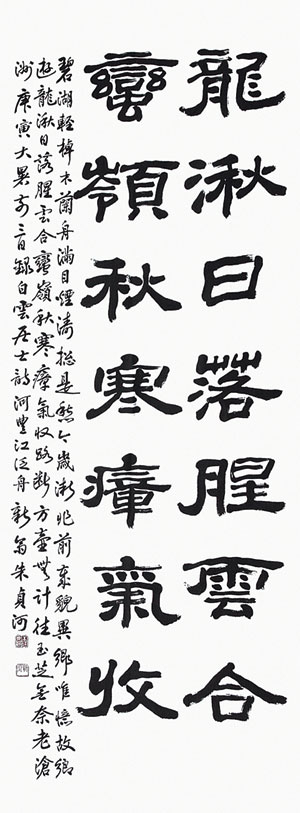 龍湫日落腥雲合
蠻嶺秋寒瘴氣收
碧湖輕棹木蘭舟滿目煙濤總是愁今歲漸非前歲貌異鄉唯憶故鄉
遊龍湫日落腥雲合蠻嶺秋寒瘴氣收路斷方壺無計往玉芝無奈老滄
洲庚寅大暑前三日錄白雲居士詩河豐江泛舟新翁朱貞河